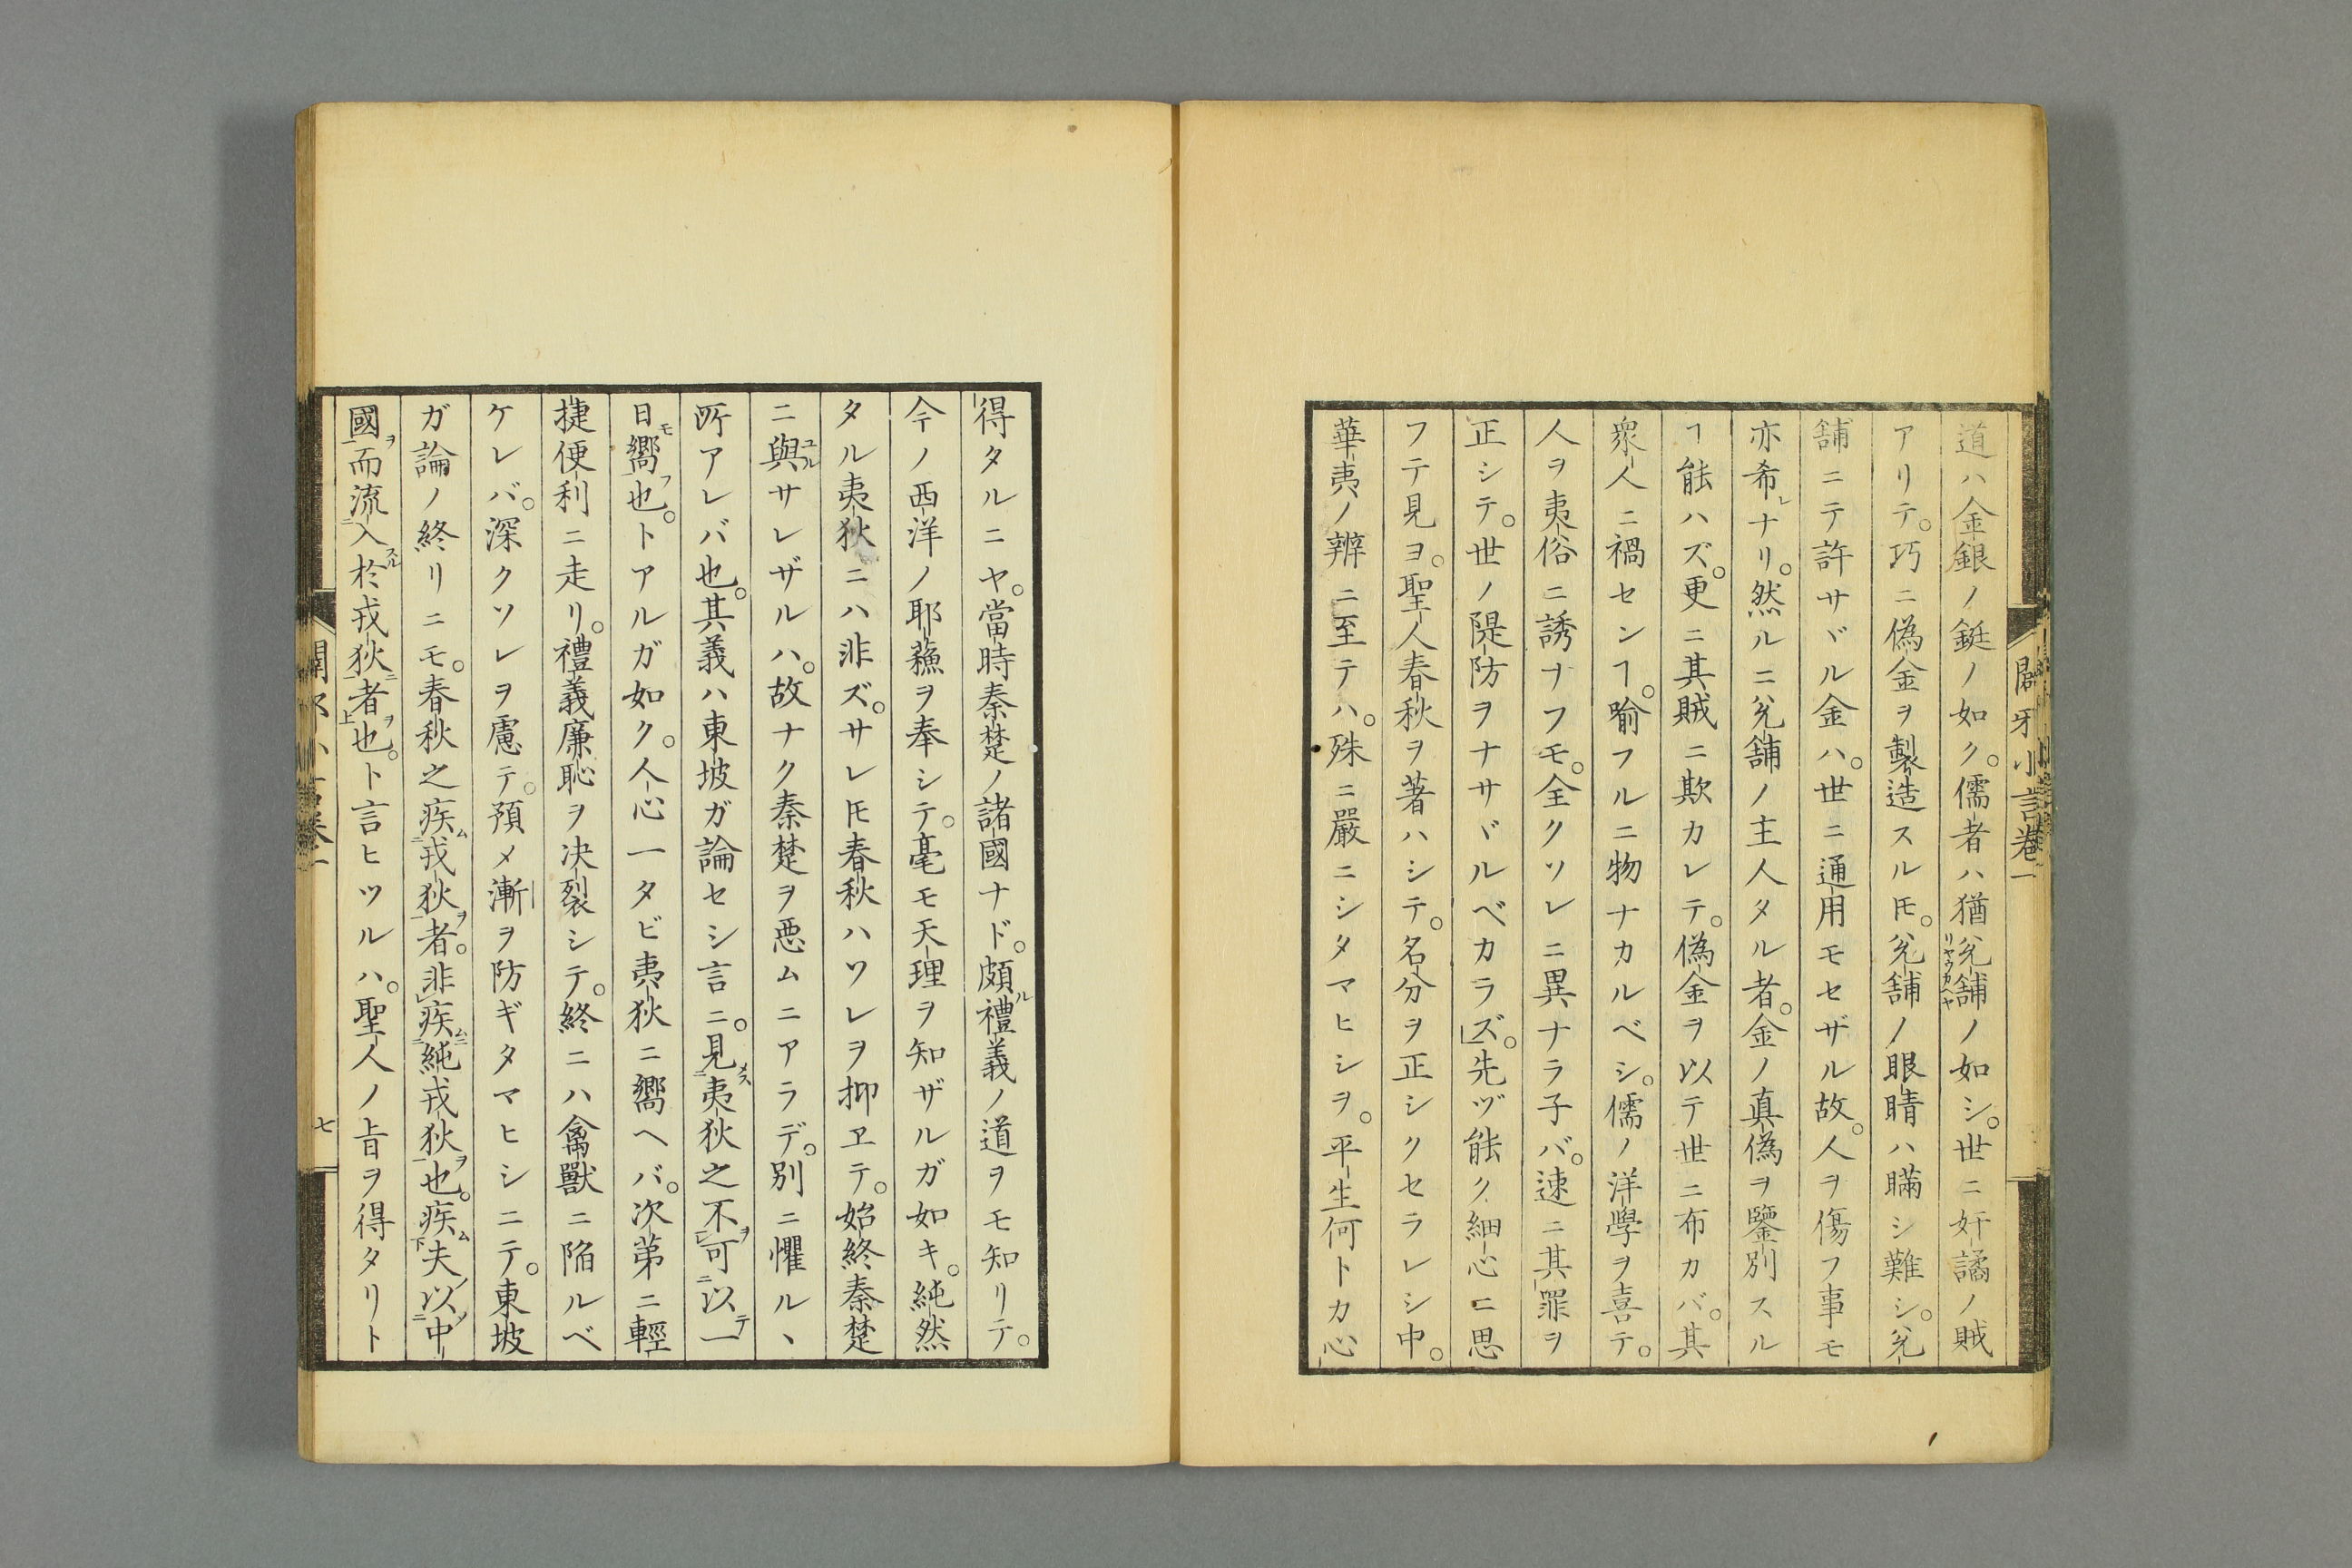 闢邪小言卷一
道ハ金銀ノ鋌ノ如ク。儒者ハ猶兊舗リヤウガヘヤノ如シ。世ニ奸譎ノ賊
アリテ。巧ニ偽金ヲ製造スルモ。兊舗ノ眼睛ハ瞞シ難シ。兊
舗ニテ許サヾル金ハ。世ニ通用モセザル故。人ヲ傷フ事モ
亦希レナリ。然ルニ兊舗ノ主人タル者。金ノ真偽ヲ鑒別スル
ヿ能ハズ。更ニ其賊ニ欺カレテ。偽金ヲ以テ世ニ布カバ。其
衆人ニ禍センヿ。喻フルニ物ナカルベシ。儒ノ洋學ヲ喜テ。
人ヲ夷俗ニ誘ナフモ。全クソレニ異ナラ子バ。速ニ其罪ヲ
正シテ。世ノ隄防ヲナサヾルベカラズ。先ヅ能ク細心ニ思
フテ見ヨ。聖人春秋ヲ著ハシテ。名分ヲ正シクセラレシ中。
華夷ノ辨ニ至テハ。殊ニ嚴ニシタマヒシヲ。平生何トカ心
得タルニヤ。當時秦楚ノ諸國ナド。頗ル禮義ノ道ヲモ知リテ。
今ノ西洋ノ耶蘓ヲ奉シテ。毫モ天理ヲ知ザルガ如キ。純然
タル夷狄ニハ非ズ。サレ𪜈春秋ハソレヲ抑ヱテ。始終秦楚
ニ與ユルサレザルハ。故ナク秦楚ヲ惡ムニアラデ。別ニ懼ルヽ
所アレバ也。其義ハ東坡ガ論セシ言ニ。見メス夷狄之不ヲ可ニ以テ一
日モ嚮フ也。トアルガ如ク。人心一タビ夷狄ニ嚮ヘバ。次第ニ輕
捷便利ニ走リ。禮義廉恥ヲ决裂シテ。終ニハ禽獸ニ陥ルベ
ケレバ。深クソレヲ慮テ。預メ漸ヲ防ギタマヒシニテ。東坡
ガ論ノ終リニモ。春秋之疾ム戎狄ヲ者。非疾ムニ純戎狄ヲ也。疾ム夫ノ以ノ中
國ヲ而流入スル於戎狄ニ者ヲ也。ト言ヒツルハ。聖人ノ旨ヲ得タリト
闢邪小言卷一
七